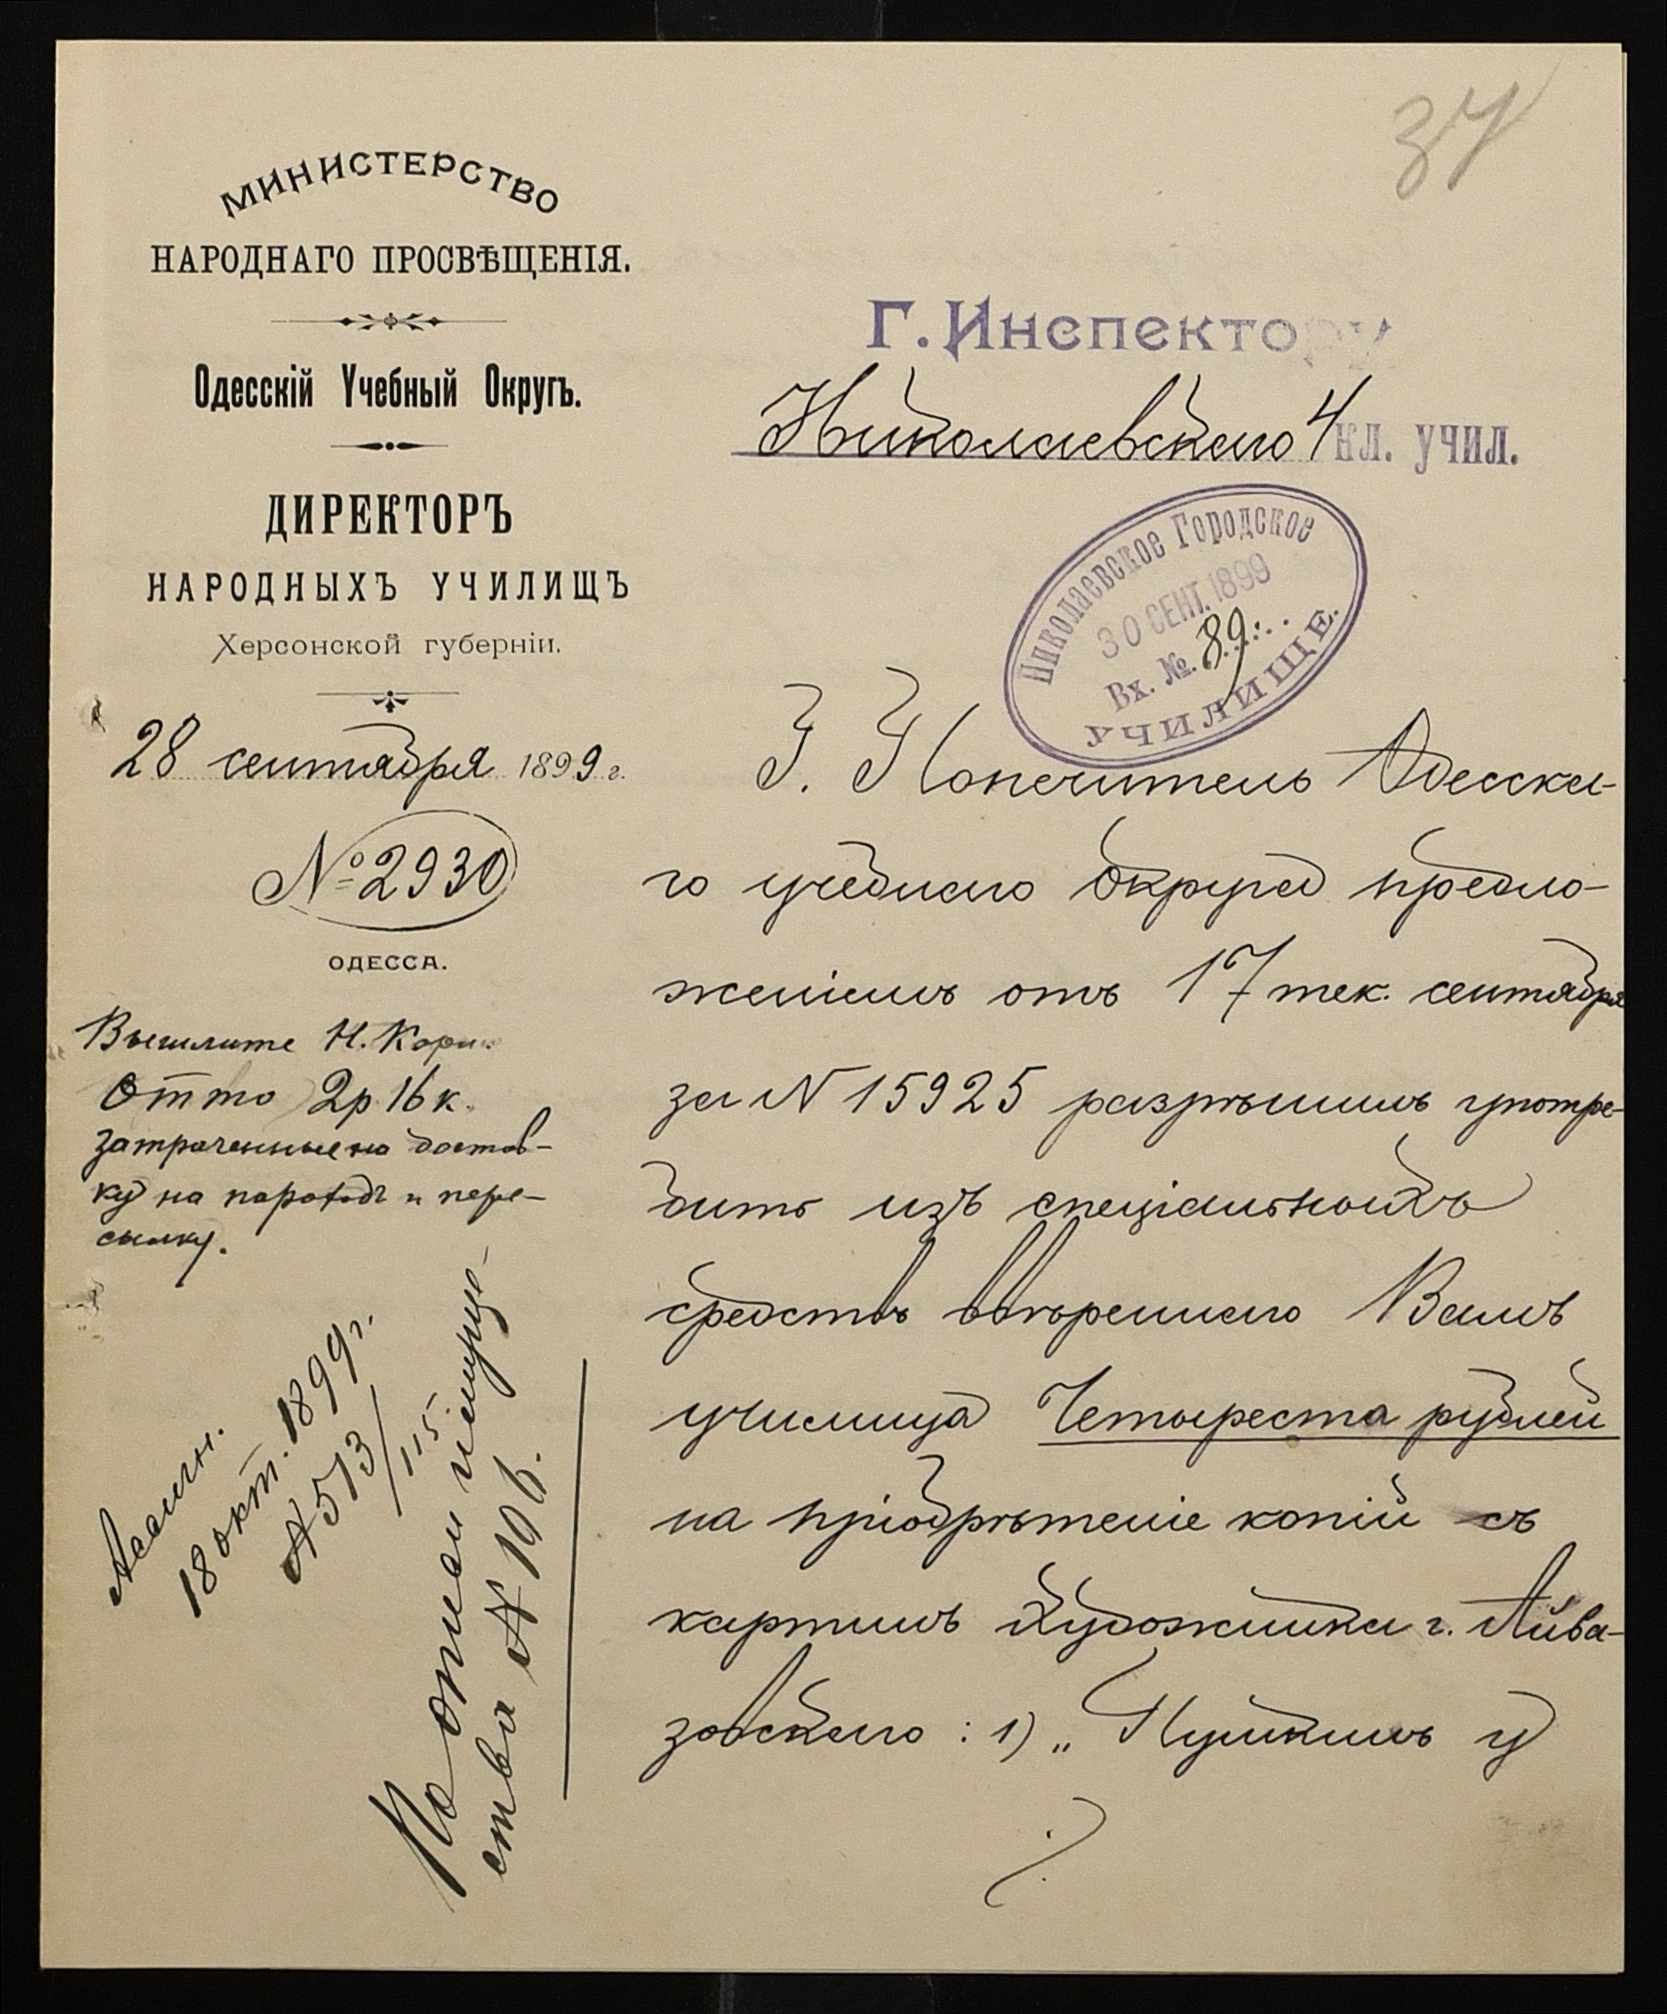 37
МИНИСТЕРСТВО
НАРОДНАГО ПРОСВѢЩЕНІЯ.
Одесскій Учебный Округъ.
ДИРЕКТОРЪ
НАРОДНЫХЪ УЧИЛИЩЪ
Херсонской губерніи.
28 сентября 1899 г.
№ 2930
ОДЕССА.
Вышлите Н. Корн
Отто 2р 16 к.
затраченные на достав-
ку на пароходъ и пере-
сылку.
Ассигн.
18 окт. 1899 г.
№ 513/115
По описи имуще-
ства № 196.
Г. Инспектору
Николаевскаго 4 кл. учил.
Николаевское Городское
30 СЕНТ. 1899
Вх. №. 89
УЧИЛИЩЕ.
Г. Попечитель Одесска-
го учебнаго Округа предло-
женіемъ отъ 17 тек. сентября
за N 15925 разрѣшилъ употре-
бить изъ спеціальныхъ
средствъ ввѣреннаго Вамъ
училища Четыреста рублей
на пріобрѣтеніе копій съ
картинъ художника г. Айва-
зовскаго : 1) „ Пушкинъ у